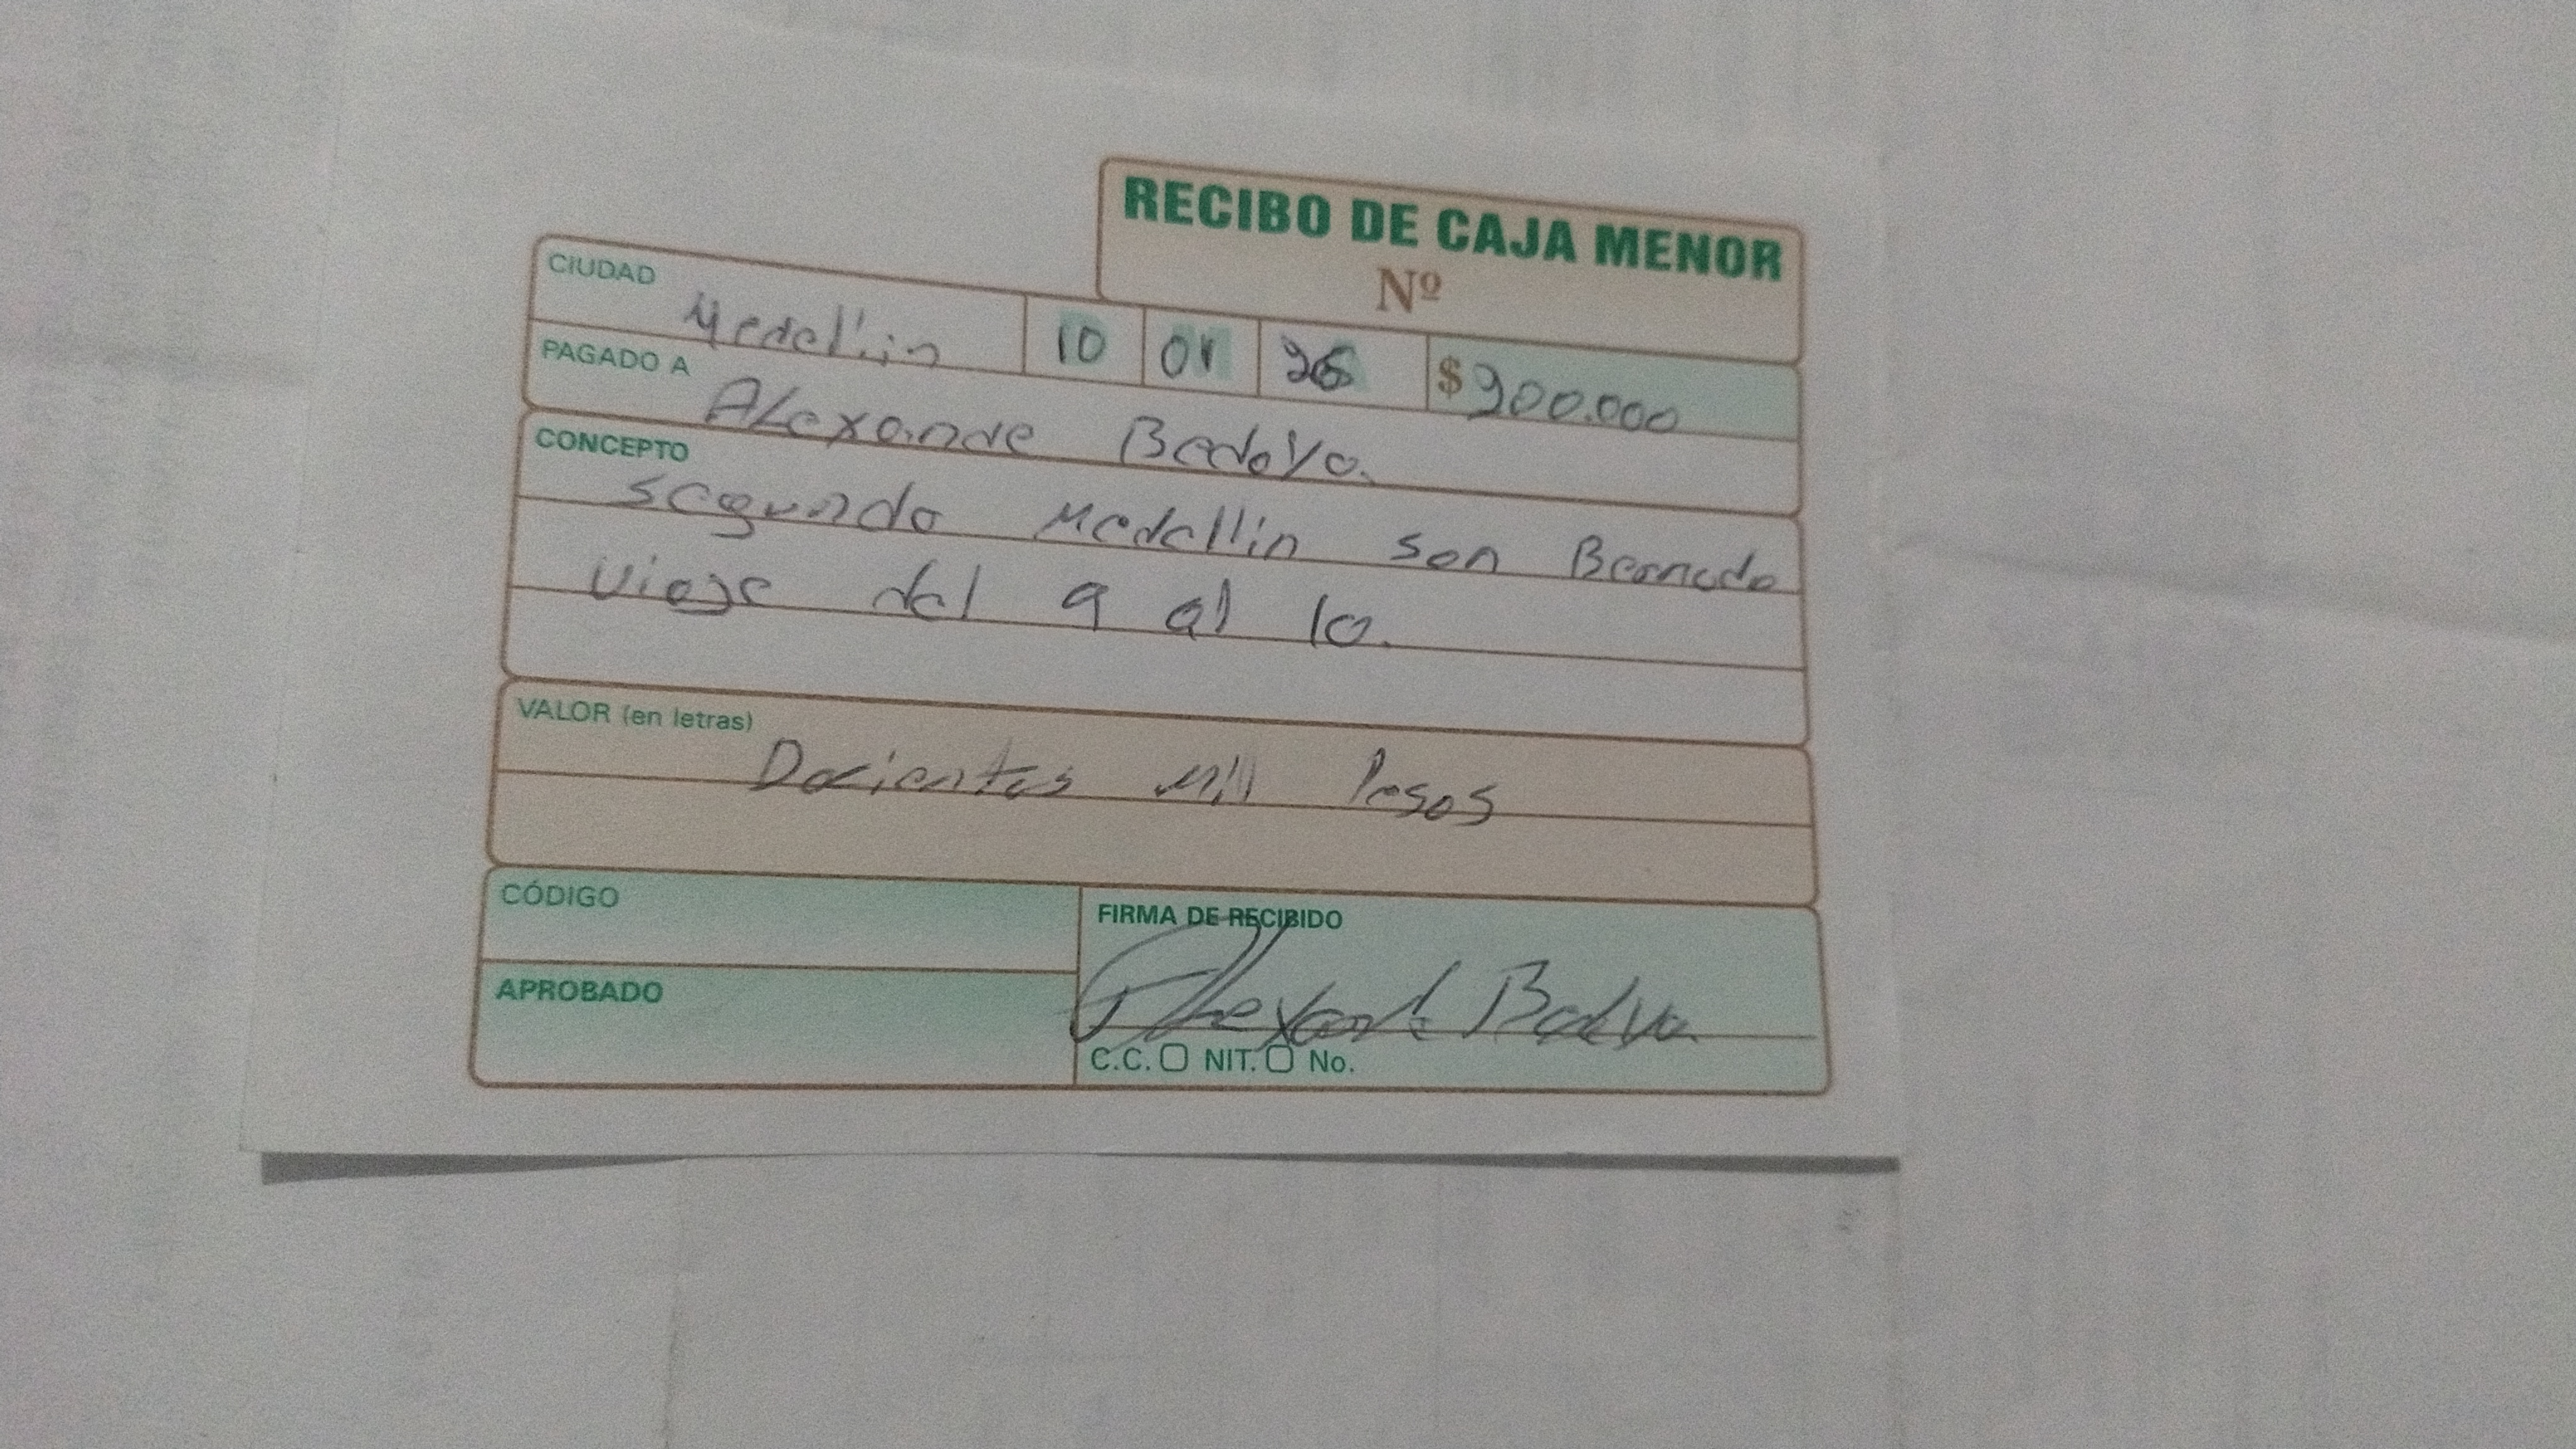 RECIBO DE CAJA MENOR
Nº
CIUDAD Medellin 10 01 26 $ 200.000
PAGADO A Alexande Bedoya.
CONCEPTO
segundo Medellin son Bernado
viaje del 9 al 10.
VALOR (en letras)
Docientos mil Pesos
CÓDIGO
APROBADO
FIRMA DE RECIBIDO
C.C. NIT. No.